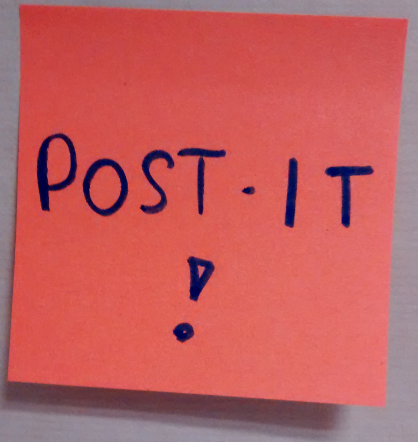 POST-IT
!